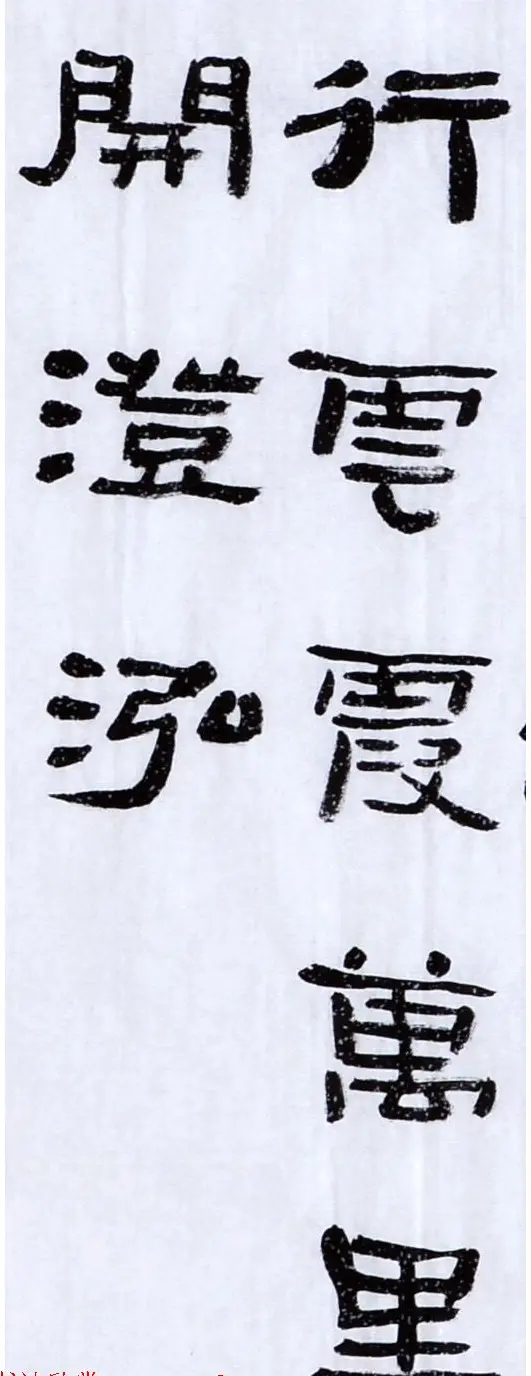 行雲霞萬里
開澄泓